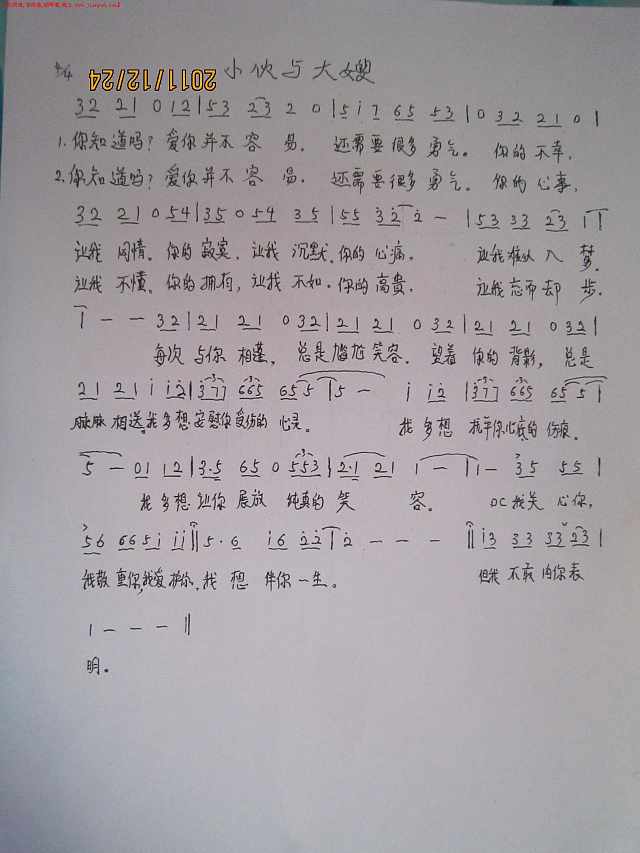 4/4 2011/12/24 小伙与大嫂
32 21 0 12 | 53 23 2 0 | 5 i 7 65 53 | 0 32 21 0 |
1.你知道吗?爱你并不容易.还需要很多勇气。你的不幸,
2.你知道吗?爱你并不容易.还需要很多勇气。你的心事,
32 21 0 54 | 35 0 54 35 | 55 32 2 - | 53 33 23 1 |
让我同情。你的寂寞.让我沉默.你的心痛. 让我难从入梦.
让我不懂。你的拥有,让我不如.你的高贵. 让我忘而却步.
1 - - 32 | 21 21 0 32 | 21 21 0 32 | 21 21 0 32 |
每次与你相逢,总是尴尬笑容.望着你的背影,总是
21 21 i i2 | 377 665 655 | 5 - i i2 | 377 665 655 |
脉脉相送。我多想安慰你受伤的心灵。我多想抚平你心底的伤痕.
5 - 01 12 | 3·5 65 0 553 | 2·1 21 1 - | 1 - 35 55 |
我多想让你展放纯真的笑容. DC我关心你,
56 665i ii || 5·6 i6 22 2 - - - || i3 33 33 23 |
我敬重你,我爱护你.我想伴你一生。但我不敢向你表
1 - - - ||
明。